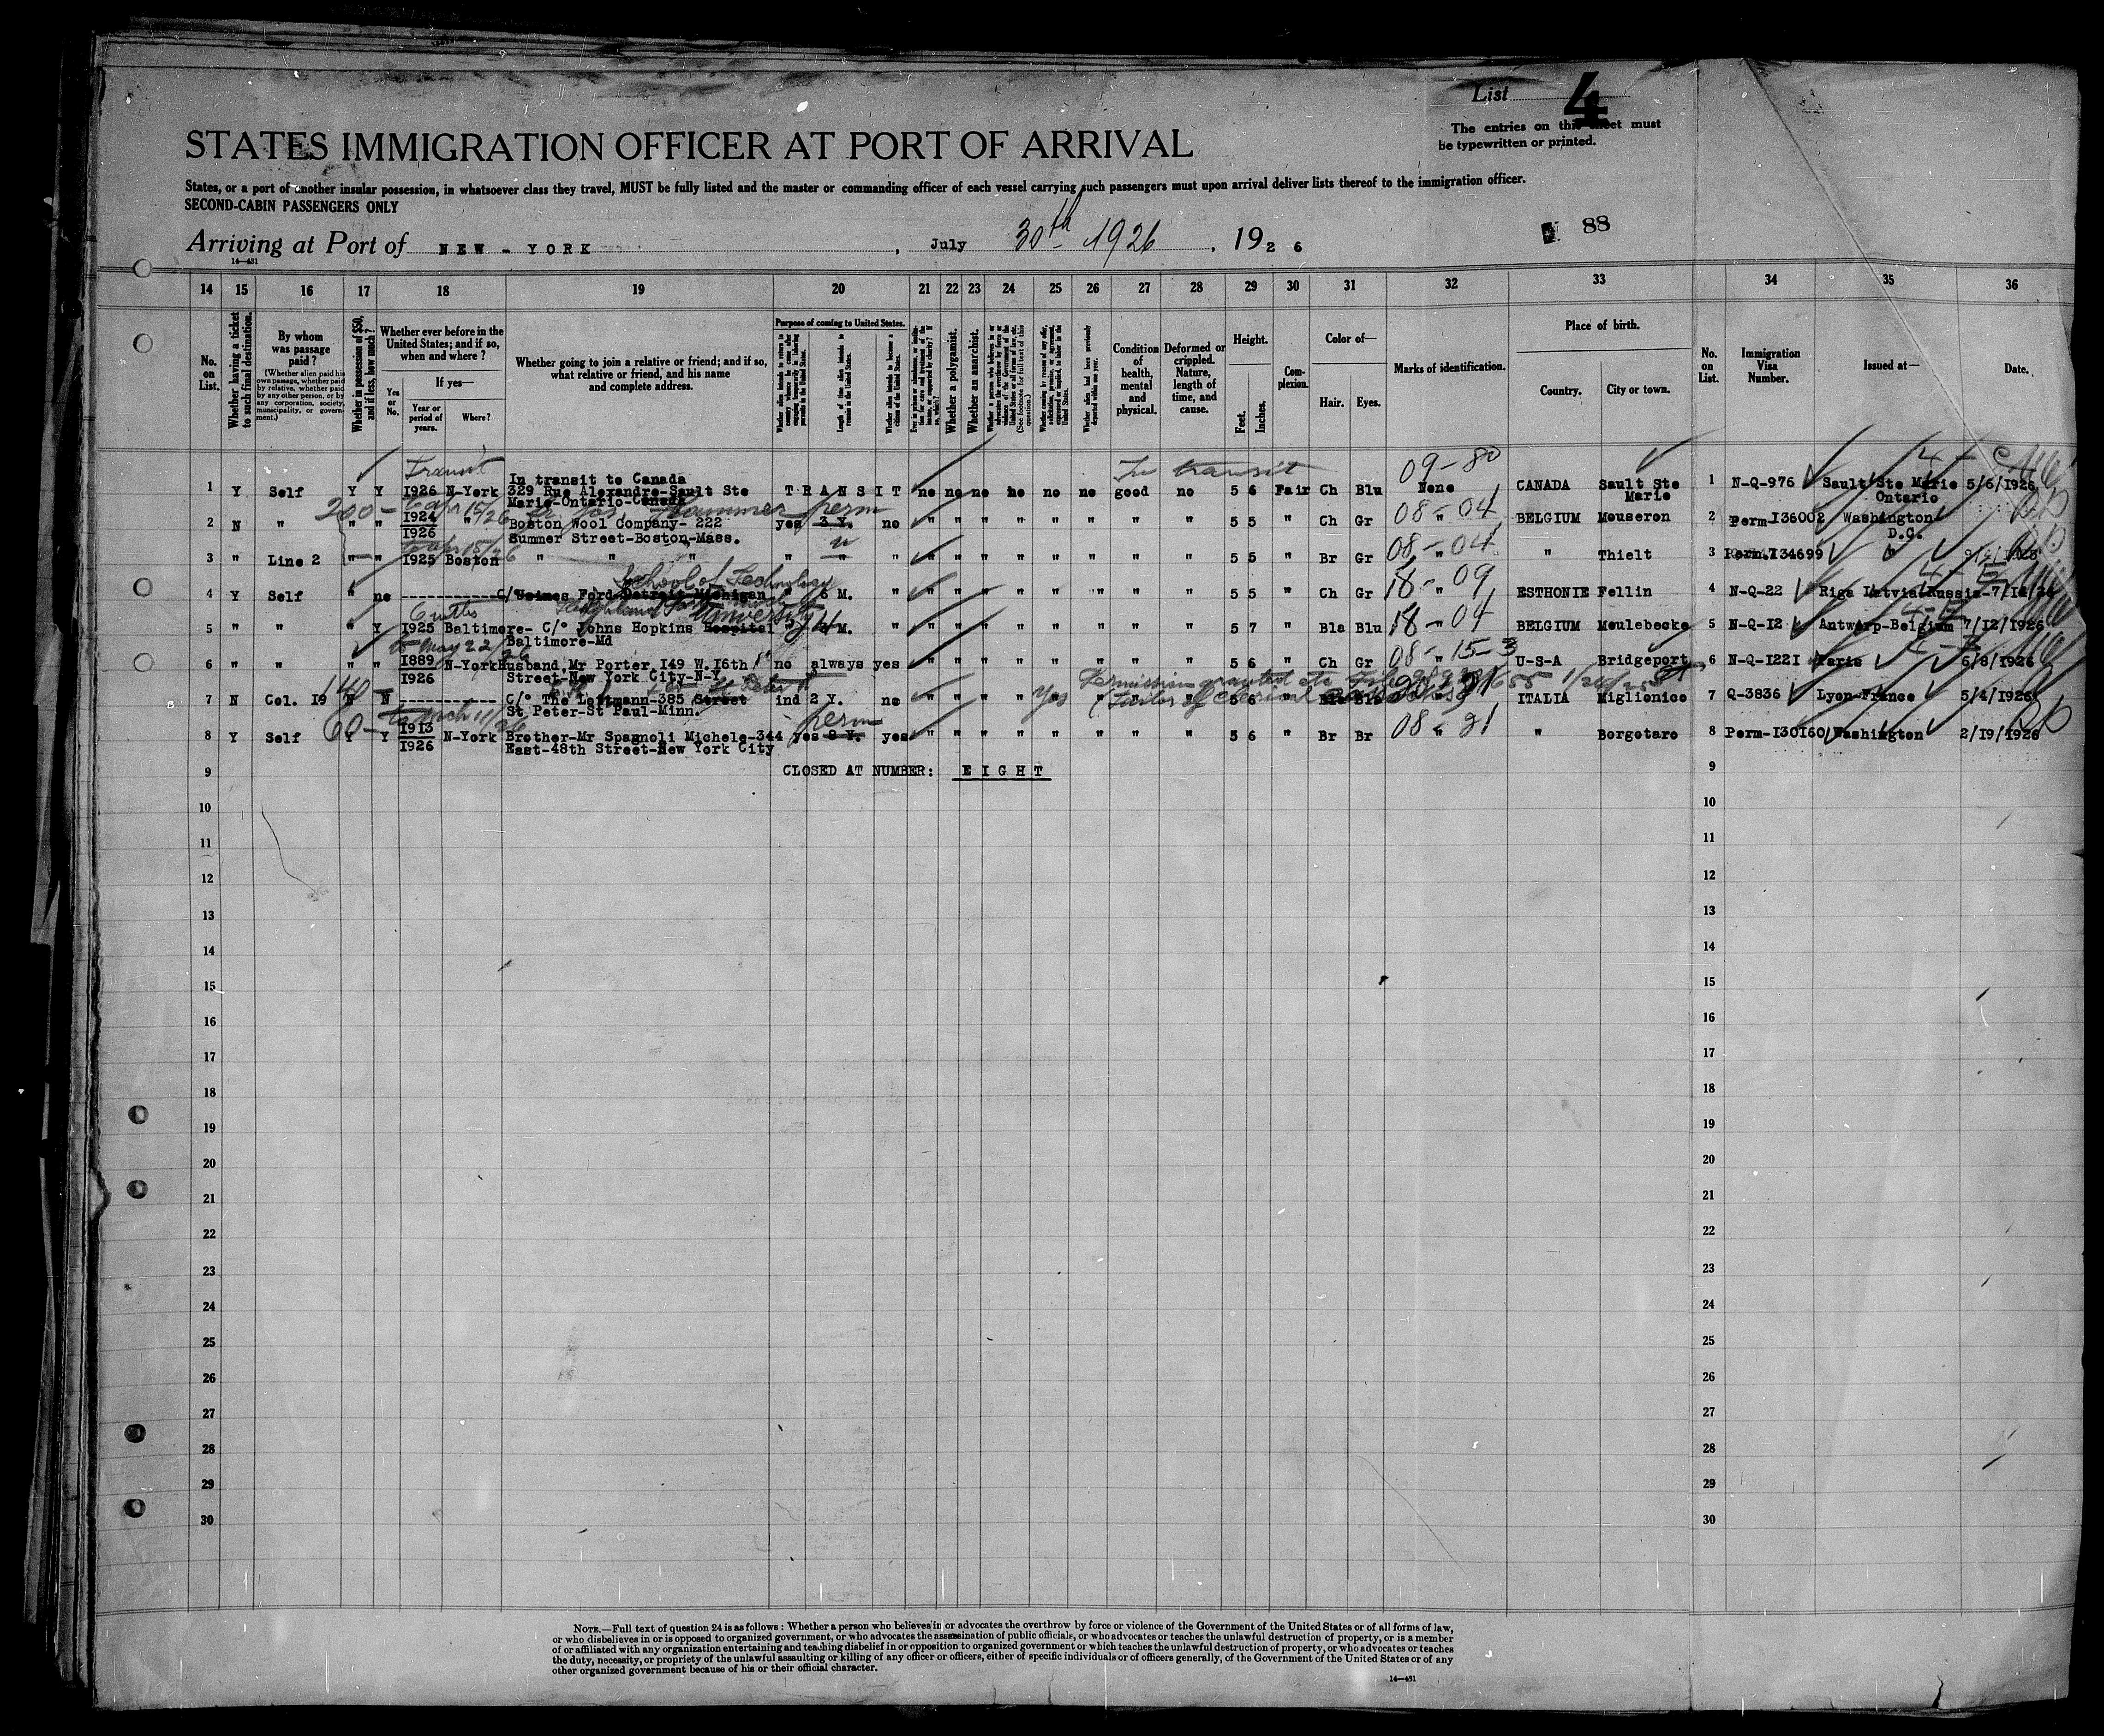 List 4
The entries on this sheet must
be typewritten or printed.
STATES IMMIGRATION OFFICER AT PORT OF ARRIVAL
States, or a port of another insular possession, in whatsoever class they travel, MUST be fully listed and the master or commanding officer of each vessel carrying such passengers must upon arrival deliver lists thereof to the immigration officer.
SECOND-CABIN PASSENGERS ONLY
88
Arriving at Port of NEW-YORK, July 30th 1926, 1926
14—431
14 15 16 17 18 19 20 21 22 23 24 25 26 27 28 29 30 31 32 33 34 35 36
No. on List.
Whether having a ticket to such final destination.
By whom was passage paid?
(Whether alien paid his own passage, whether paid by relative, whether paid by any other person, or by any corporation, society, municipality, or government.)
Whether in possession of $50, and if less, how much?
Whether ever before in the United States; and if so, when and where?
Yes or No.
If yes—
Year or period of years.
Where?
Whether going to join a relative or friend; and if so, what relative or friend, and his name and complete address.
Purpose of coming to United States.
Length of time alien intends to remain in the United States.
Whether alien intends to become a citizen of the United States.
Whether a polygamist.
Whether an anarchist.
Condition of health, mental and physical.
Deformed or crippled. Nature, length of time, and cause.
Height.
Feet.
Inches.
Complexion.
Color of—
Hair.
Eyes.
Marks of identification.
Place of birth.
Country.
City or town.
No. on List.
Immigration Visa Number.
Issued at—
Date.
Transit
In transit
09-80
In transit to Canada
1 Y Self Y Y 1926 N-York 329 Rue Alexandre-Sault Ste TRANSIT no no no no no no good no 5 6 Fair Ch Blu None CANADA Sault Ste 1 N-Q-976 Sault Ste Marie 5/6/1926
Marie-Ontario-Canada Marie Ontario
200- perm 08-04
2 N " " " 1924 " Boston Wool Company- 222 yes 3 Y. no " " " " " " " " 5 5 " Ch Gr " BELGIUM Mouseron 2 Perm.136002 Washington
1926 Summer Street-Boston-Mass. D.C.
08-04
3 " Line 2 " " 1925 Boston " " " " " " " " " " " " " " 5 5 " Br Gr " " Thielt 3 Perm.134699
School of Technology
18-09
4 Y Self " no ------------ Ford Detroit Michigan " 6 M. " " " " " " " " " 5 5 " Ch Gr " ESTHONIE Fellin 4 N-Q-22 Riga Latvia Russia
University
18-04
5 " " " Y 1925 Baltimore- C/° Johns Hopkins Hospital " M. " " " " " " " " " 5 7 " Bla Blu " BELGIUM Meulebecke 5 N-Q-12 Antwerp-Belgium 7/12/1926
Baltimore-Md
to May 22/26
08-15-3
6 " " " " 1889 N-York Husband Mr Porter 149 W.16th no always yes " " " " " " " " 5 6 " Ch Gr " U-S-A Bridgeport 6 N-Q-1221 Paris 6/8/1926
1926 Street-New York City-N-Y.
140-
Permission granted
7 N Col. 19 N N ------------ C/° The Loftmann-385 Street ind 2 Y. no " " " " yes " " " 5 6 " ITALIA Miglionico 7 Q-3836 Lyon-France 5/4/1926
St Peter-St Paul-Minn.
60- perm 08-21
8 Y Self Y Y 1913 N-York Brother-Mr Spagnoli Michele-344 yes yes " " " " " " " " 5 6 " Br Br " " Borgotaro 8 Perm-130160 Washington 2/19/1926
1926 East-48th Street-New York City
9 CLOSED AT NUMBER: EIGHT 9
10 10
11 11
12 12
13 13
14 14
15 15
16 16
17 17
18 18
19 19
20 20
21 21
22 22
23 23
24 24
25 25
26 26
27 27
28 28
29 29
30 30
NOTE.—Full text of question 24 is as follows: Whether a person who believes in or advocates the overthrow by force or violence of the Government of the United States or of all forms of law,
or who disbelieves in or is opposed to organized government, or who advocates the assassination of public officials, or who advocates or teaches the unlawful destruction of property, or is a member
of or affiliated with any organization entertaining and teaching disbelief in or opposition to organized government or which teaches the unlawful destruction of property, or who advocates or teaches
the duty, necessity, or propriety of the unlawful assaulting or killing of any officer or officers, either of specific individuals or of officers generally, of the Government of the United States or of any
other organized government because of his or their official character.
14—431